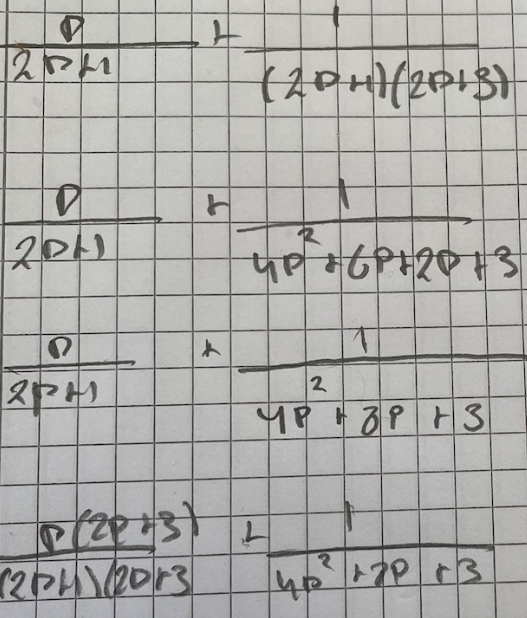 p/(2p+1) + 1/((2p+1)(2p+3))
p/(2p+1) + 1/(4p²+6p+2p+3)
p/(2p+1) + 1/(4p²+8p+3)
p(2p+3)/((2p+1)(2p+3) + 1/(4p²+8p+3)